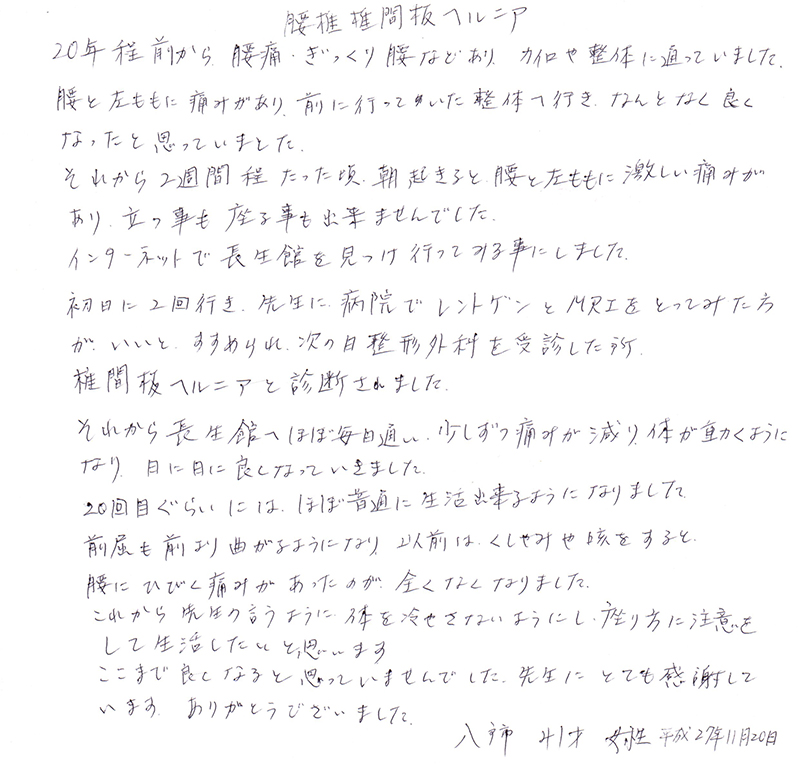 腰椎椎間板ヘルニア
20年程前から、腰痛・ぎっくり腰などあり、カイロや整体に通っていました。
腰と左ももに痛みがあり、前に行っていた整体へ行き、なんとなく良く
なったと思っていました。
それから2週間程たった頃、朝起きると、腰と左ももに激しい痛みが
あり、立つ事も座る事も出来ませんでした。
インターネットで長生館を見つけ行ってみる事にしました。
初日に2回行き、先生に、病院でレントゲンとMRIをとってみた方
が、いいと、すすめられ、次の日整形外科を受診した所、
椎間板ヘルニアと診断されました。
それから長生館へほぼ毎日通い、少しずつ痛みが減り、体が動くように
なり、日に日に良くなっていきました。
20回目ぐらいには、ほぼ普通に生活出来るようになりました。
前屈も前より曲がるようになり、以前は、くしゃみや咳をすると、
腰にひびく痛みがあったのが、全くなくなりました。
これから先生の言うように体を冷やさないようにし、座り方に注意を
して生活したいと思います
ここまで良くなると思っていませんでした。先生にとても感謝して
います。ありがとうございました。
八市 41才 女性 平成27年11月20日